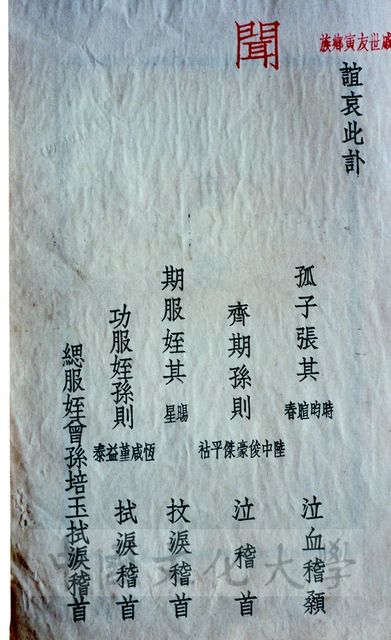 族鄉寅友世戚
聞
誼哀此訃
孤子張其昀暄春 泣血稽顙
齊期孫則中俊豪傑平祜 泣稽首
期服姪其暘星 抆淚稽首
功服姪孫則恆咸堇益泰 拭淚稽首
緦服姪曾孫培玉拭淚稽首
中國文化大學